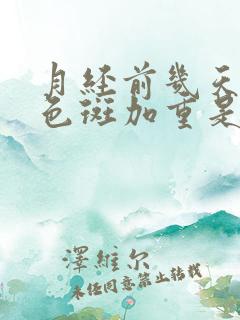 月经前几天
色斑加重是
澤維尔
未任同意禁止转载